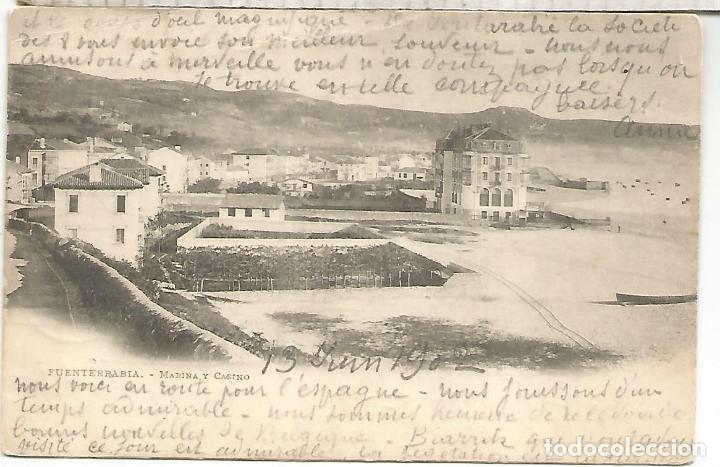 et le coup d'œil magnifique - De Fontarabie la Société
des 8 vous envoie son meilleur souvenir - nous nous
amusons à merveille vous n'en doutez pas lorsqu'on
se trouve en telle compagnie
baisers
Anna
FUENTERRABIA. - MARINA Y CASINO
13 Juin 1902
nous voici en route pour l'espagne - nous jouissons d'un
temps admirable - nous sommes heureux de
bonnes nouvelles de Belgique - Biarritz que
visité ce jour est admirable la végétation
todocoleccion